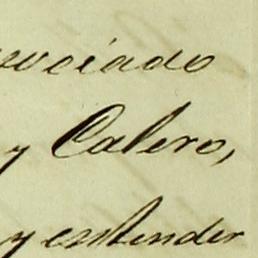 ociado
y Calero,
y entender